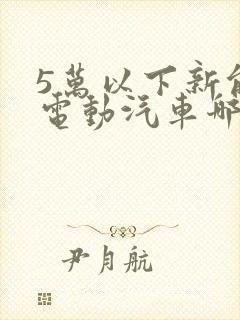 5萬以下新能
電動汽車哪
尹月航